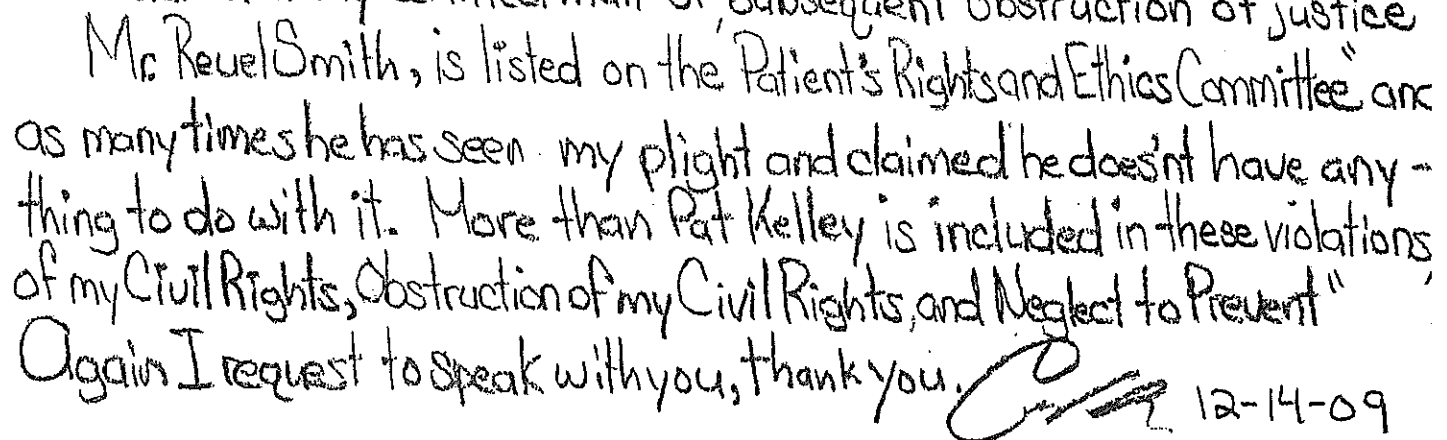 subsequent obstruction of justice
Mr. Reuel Smith, is listed on the "Patient's Rights and Ethics Committee" and
as many times he has seen my plight and claimed he does'nt have any-
thing to do with it. More than Pat Kelley is included in these violations,
of my Civil Rights, Obstruction of my Civil Rights, and Neglect to Prevent"
Again I request to speak with you, thank you.
12-14-09